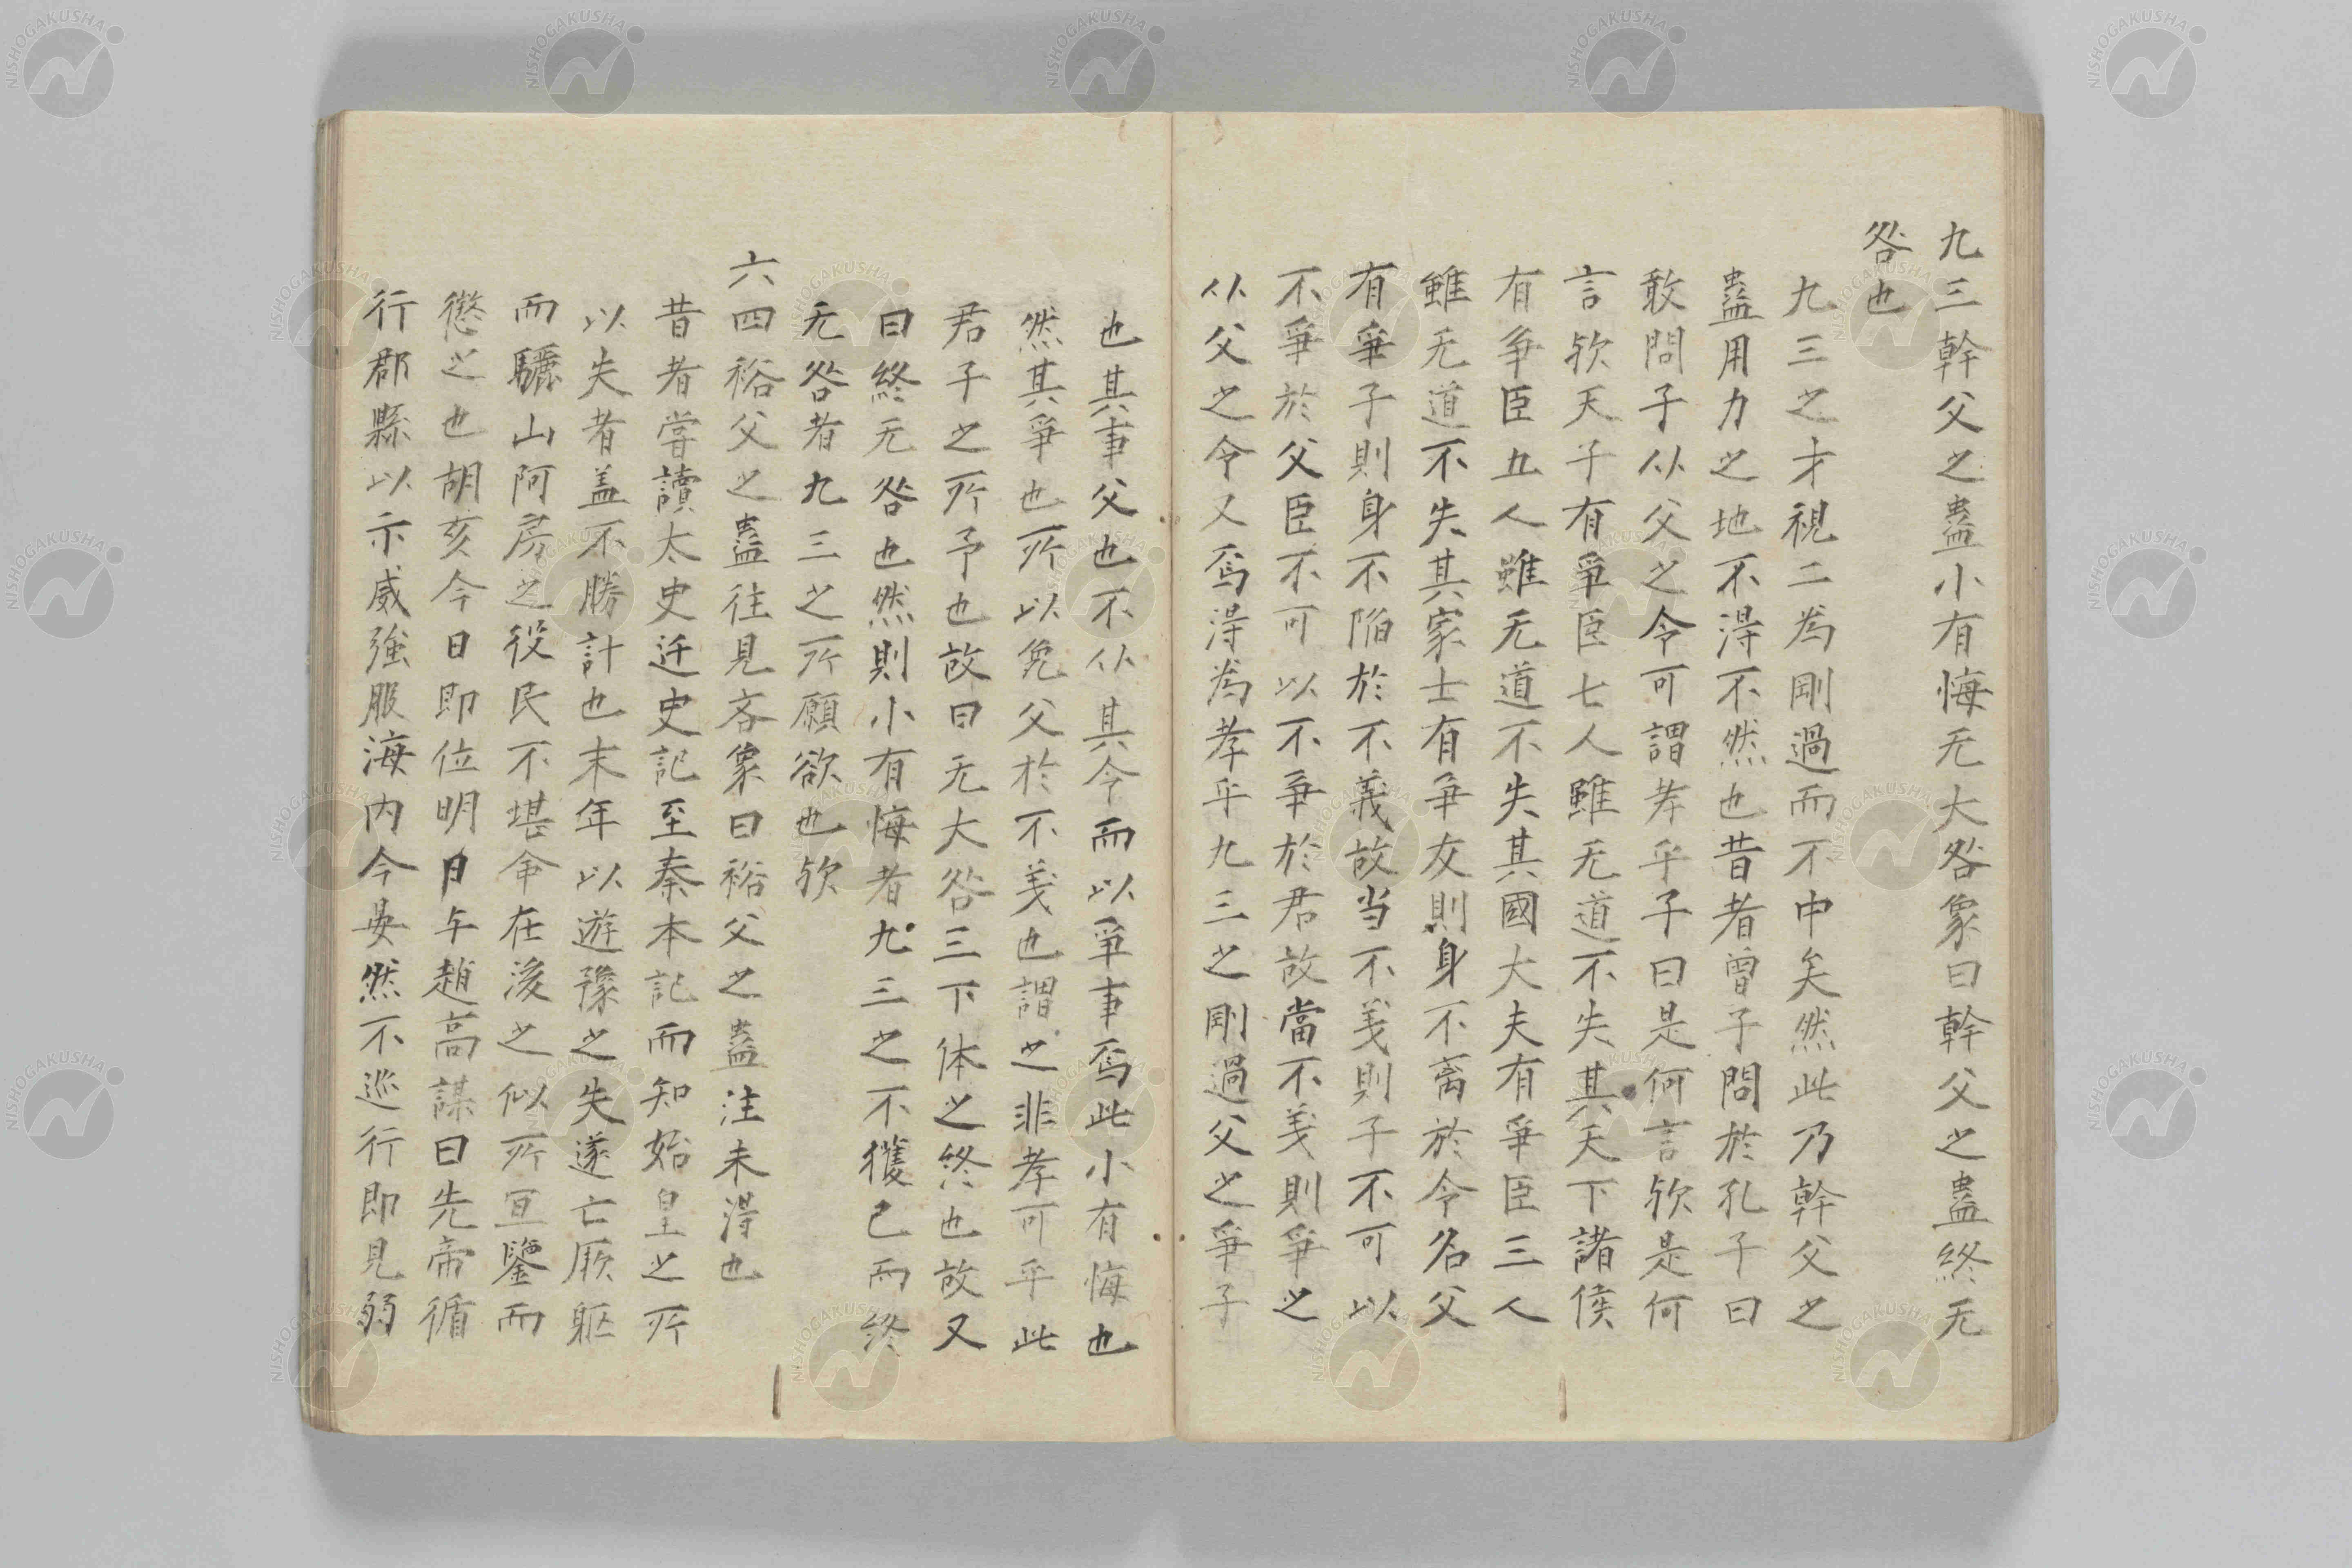 九三幹父之蠱小有悔无大咎象曰幹父之蠱終无
咎也
九三之才視二為剛過而不中矣然此乃幹父之
蠱用力之地不得不然也昔者曽子問於孔子曰
敢問子从父之令可謂孝乎子曰是何言欤是何
言欤天子有爭臣七人雖无道不失其天下諸侯
有爭臣五人雖无道不失其國大夫有爭臣三人
雖无道不失其家士有爭友則身不离於令名父
有爭子則身不陷於不義故当不義則子不可以
不爭於父臣不可以不爭於君故當不義則爭之
从父之令又焉得為孝乎九三之剛過父之爭子
也其事父也不从其令而以爭事焉此小有悔也
然其爭也所以免父於不義也謂之非孝可乎此
君子之所予也故曰无大咎三下体之終也故又
曰終无咎也然則小有悔者九三之不獲已而終
无咎者九三之所願欲也欤
六四裕父之蠱往見吝象曰裕父之蠱注未得也
昔者嘗讀太史迁史記至秦本記而知始皇之所
以失者盖不勝計也末年以遊豫之失遂亡厥軀
而驪山阿房之役民不堪命在後之似所宜鑒而
懲之也胡亥今日即位明日与趙高謀曰先帝循
行郡縣以示威強服海内今晏然不巡行即見弱
NISHOGAKUSHA